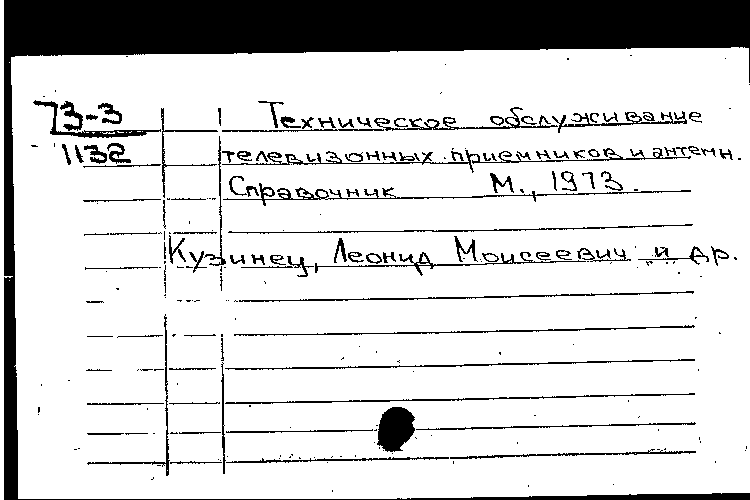 73-3 Техническое обслуживание
1132 телевизонных приемников и антенн.
Справочник М., 1973.
Кузинец, Леонид Моисеевич и др.